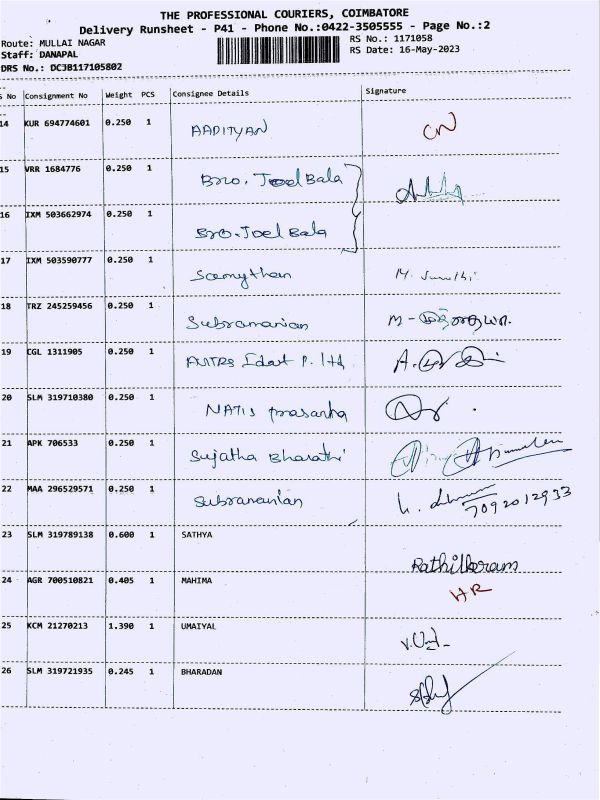 THE PROFESSIONAL COURIERS, COIMBATORE
Delivery Runsheet - P41 - Phone No.:0422-3505555 - Page No.:2
Route: MULLAI NAGAR RS No.: 1171058
Staff: DANAPAL RS Date: 16-May-2023
DRS No.: DCJB117105802
S No Consignment No Weight PCS Consignee Details Signature
14 KUR 694774601 0.250 1 AADITYAN CN
15 VRR 1684776 0.250 1 Bro. Joel Bala
16 IXM 503662974 0.250 1 Bro. Joel Bala
17 IXM 503590777 0.250 1
18 TRZ 245259456 0.250 1 Subramanian M -
19 CGL 1311905 0.250 1 P. ltd A.
20 SLM 319710380 0.250 1 prasanna
21 APK 706533 0.250 1 Sujatha Bharathi
22 MAA 296529571 0.250 1 Subramanian 7092012933
23 SLM 319789138 0.600 1 SATHYA
24 AGR 700510821 0.405 1 MAHIMA HR
25 KCM 21270213 1.390 1 UMAIYAL
26 SLM 319721935 0.245 1 BHARADAN